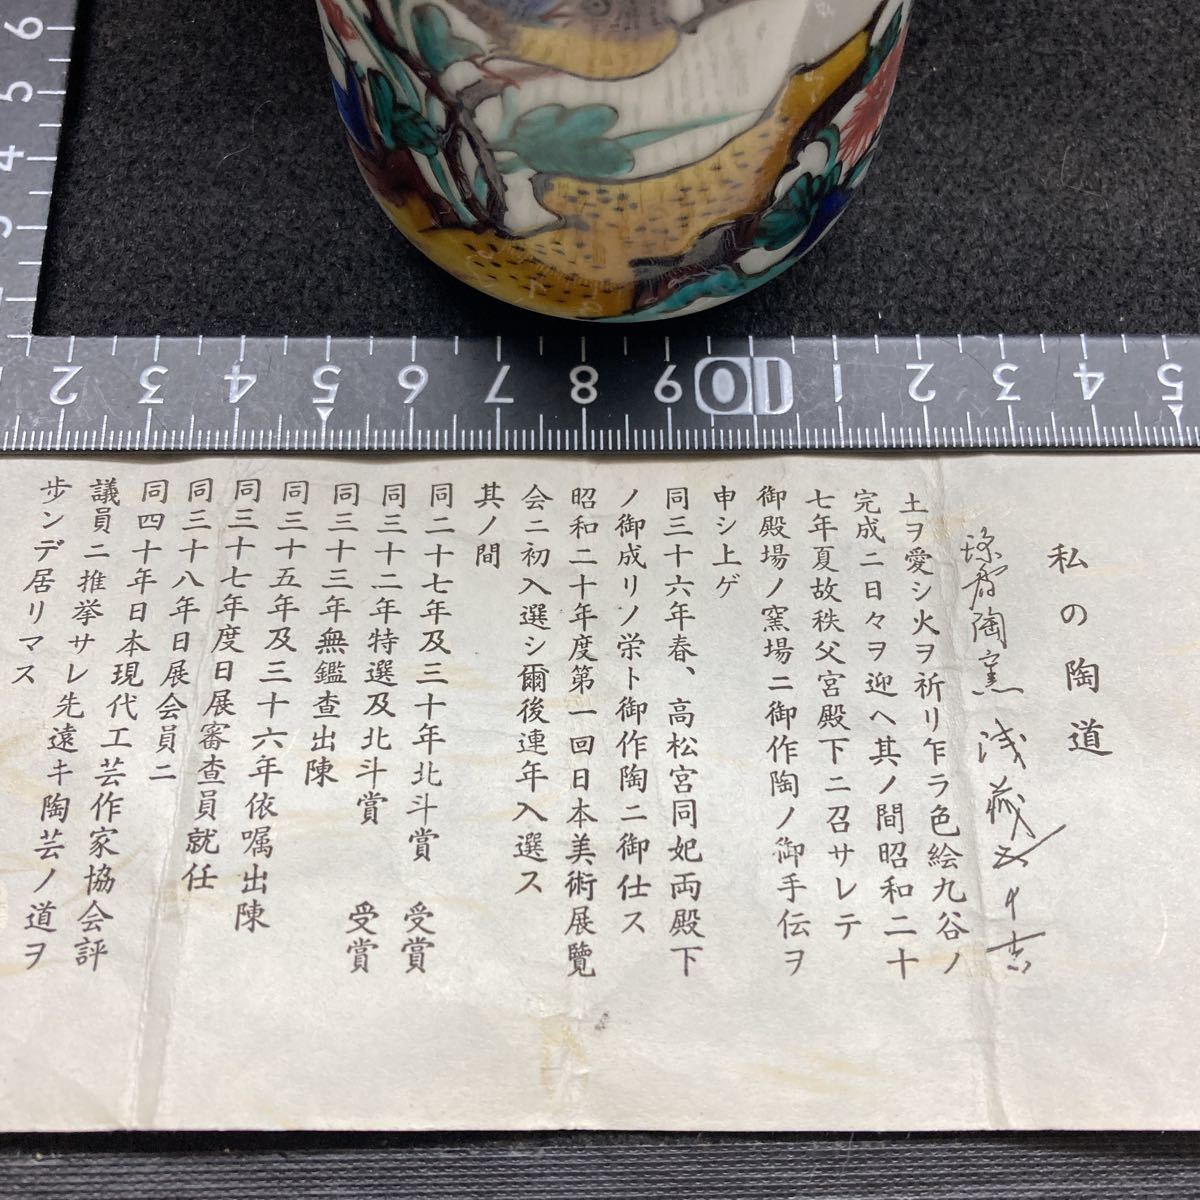 私の陶道
陶窯 浅蔵五十吉
土ヲ愛シ火ヲ祈リ乍ラ色絵九谷ノ
完成ニ日々ヲ迎ヘ其ノ間昭和二十
七年夏故秩父宮殿下ニ召サレテ
御殿場ノ窯場ニ御作陶ノ御手伝ヲ
申シ上ゲ
同三十六年春、高松宮同妃両殿下
ノ御成リノ栄ト御作陶ニ御仕ス
昭和二十年度第一回日本美術展覽
会ニ初入選シ爾後連年入選ス
其ノ間
同二十七年及三十年北斗賞 受賞
同三十二年特選及北斗賞 受賞
同三十三年無鑑査出陳
同三十五年及三十六年依嘱出陳
同三十七年度日展審査員就任
同三十八年日展会員ニ
同四十年日本現代工芸作家協会評
議員ニ推挙サレ先遠キ陶芸ノ道ヲ
歩ンデ居リマス
6
5
4
3
2 3 4 5 6 7 8 9 10 1 2 3 4 5